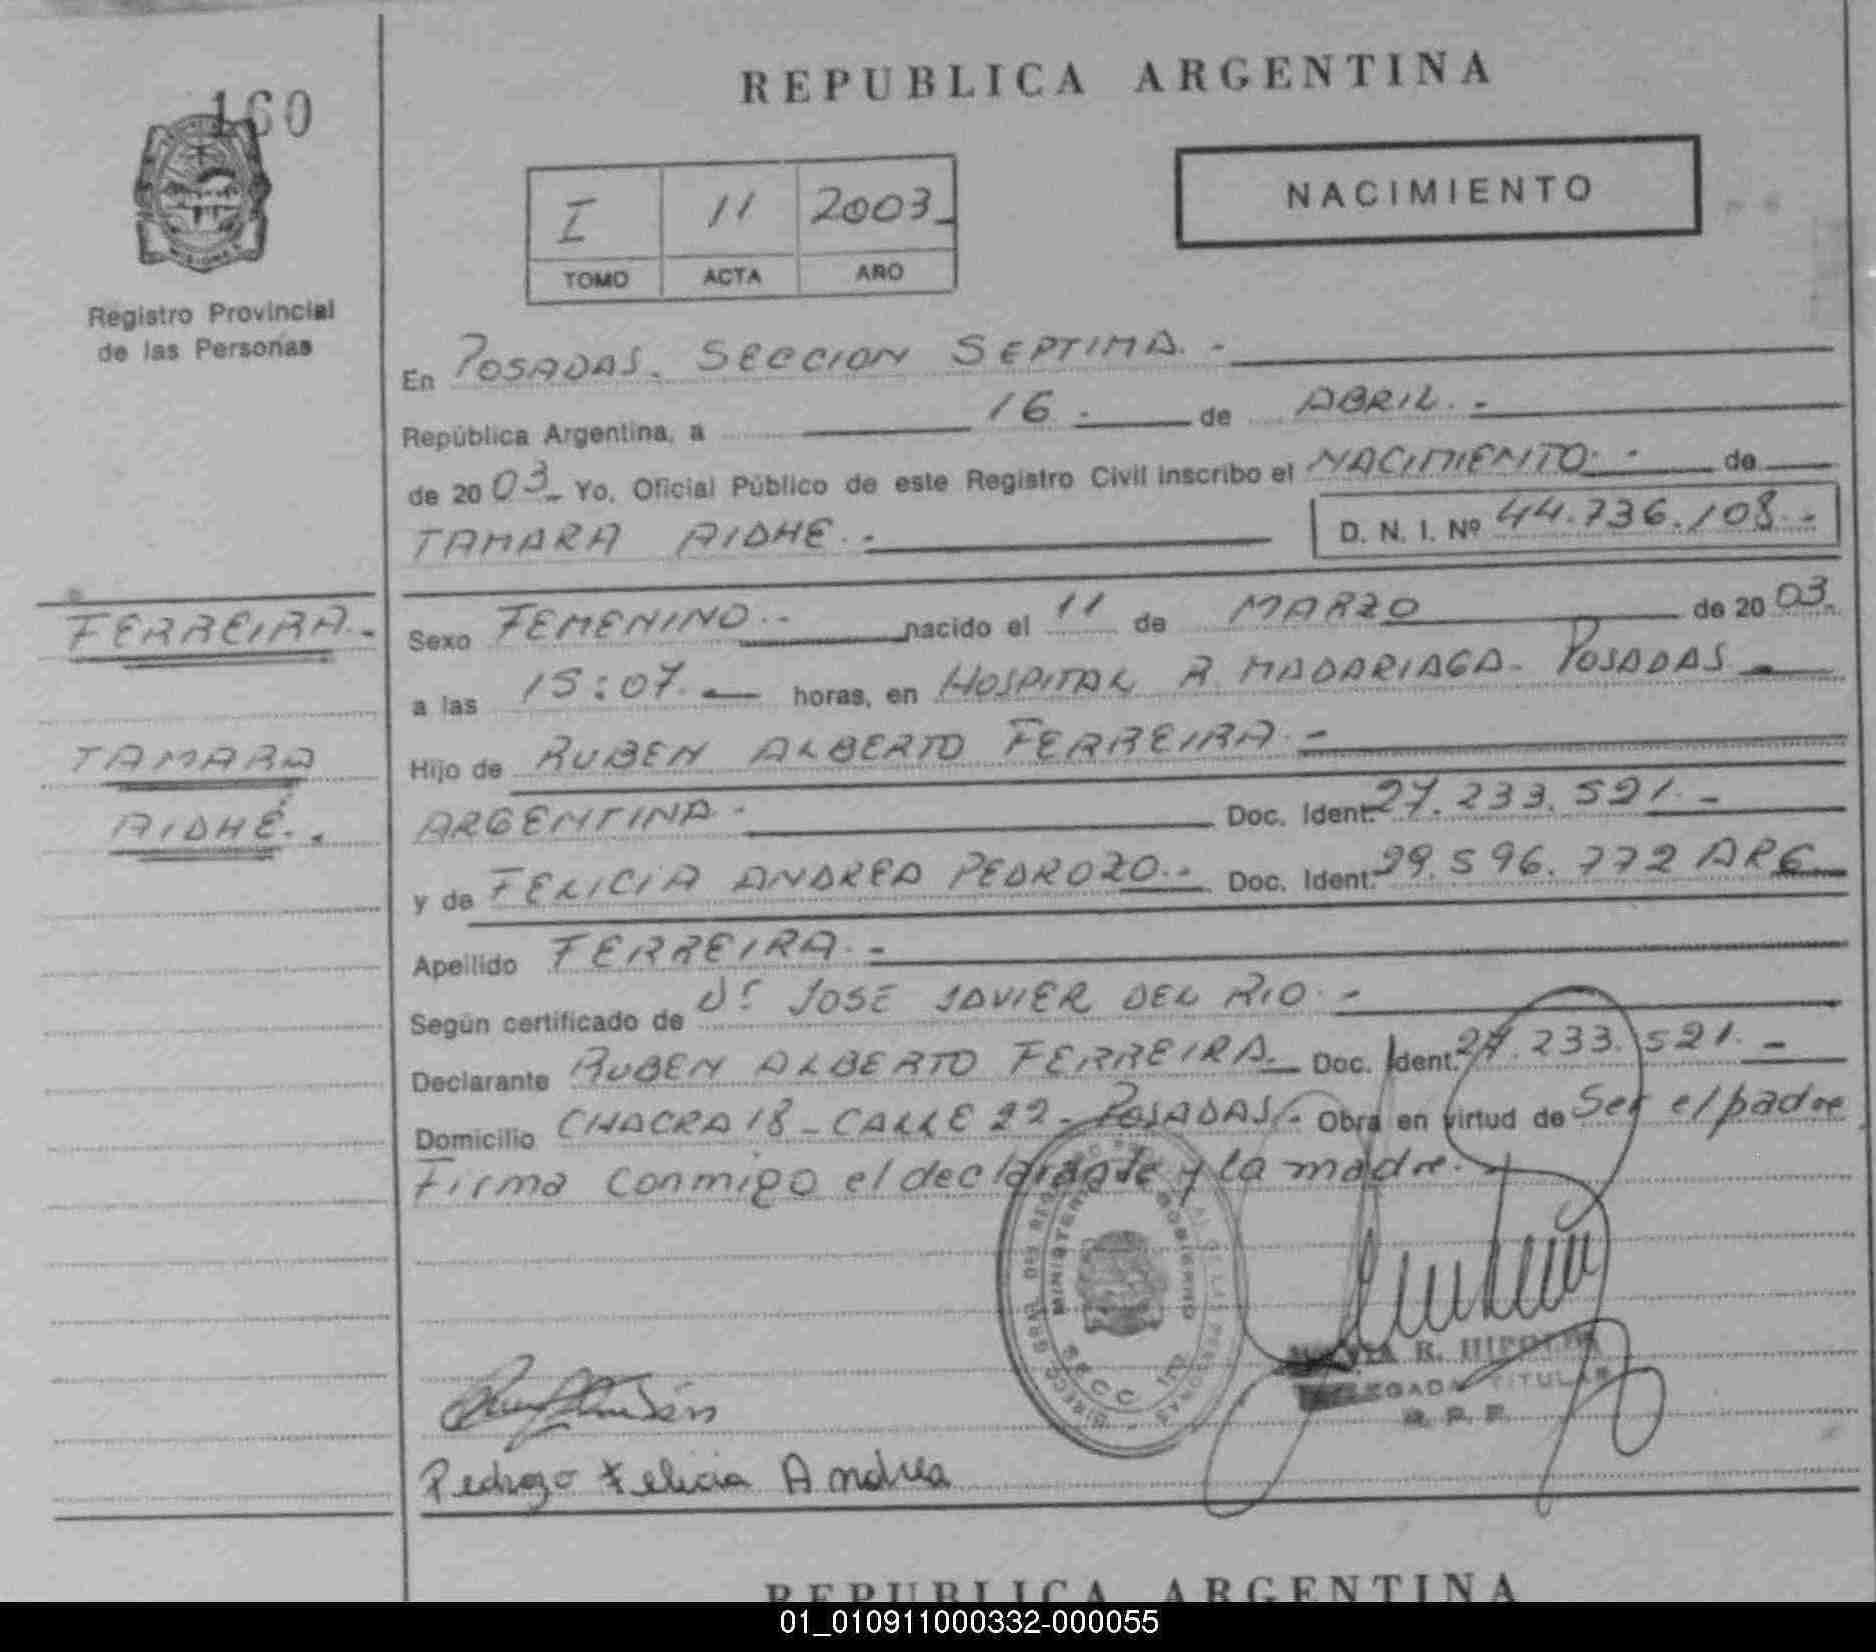 160
REPUBLICA ARGENTINA
I 11 2003
TOMO ACTA AÑO
NACIMIENTO
Registro Provincial
de las Personas
En POSADAS. SECCION SEPTIMA.-
República Argentina, a 16.- de ABRIL.-
de 2003- Yo, Oficial Público de este Registro Civil inscribo el NACIMIENTO.- de
TAMARA AIDHE.- D. N. I. Nº 44.736.108.-
FERREIRA.-
TAMARA
AIDHÉ.-
Sexo FEMENINO.- nacido el 11 de MARZO de 2003.
a las 15:07.- horas, en HOSPITAL R. MADARIAGA- POSADAS-
Hijo de RUBEN ALBERTO FERREIRA.-
ARGENTINA.- Doc. Ident. 27.233.521.-
y de FELICIA ANDREA PEDROZO.- Doc. Ident. 29.596.772 ARG
Apellido FERREIRA.-
Según certificado de Dr. JOSE JAVIER DEL RIO.-
Declarante RUBEN ALBERTO FERREIRA.- Doc. Ident. 27.233.521.-
Domicilio CHACRA 18- CALLE 22- POSADAS.- Obra en virtud de Ser el padre
Firma conmigo el declarante y la madre.-
MINISTERIO DE GOBIERNO
SECC.
R. HIPOLITO
DELEGADA TITULAR
R. P. P.
Pedrozo Felicia Andrea
REPUBLICA ARGENTINA
01_010911000332-000055